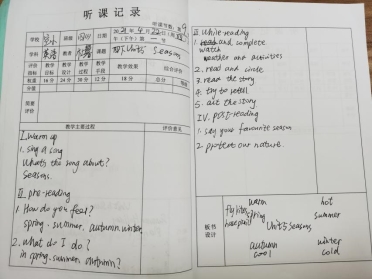 听课记录
听课节数：第 9
学校
班级
日期 2021年4月22日
午（下午）第 一 节
学科 英语
教者
课题 Unit5 Seasons
评价指标
教学目标
教学设计
教学过程
教学手段
教学效果
综合评价
权重
16分
24分
30分
12分
18分
总分
分值
简要评价
教学主要过程
评价意见
I. Warm up
1. sing a song
What's the song about?
Seasons.
II. pre-reading
1. How do you feel?
spring. summer. autumn. winter.
2. What do I do?
in spring. summer. authmn?
III. While reading
1. and complete
watch
weather and activities
2. read and circle
3. read the story
4. try to retell
5. act the story
IV. post-reading
1. say your favourite season
2. protect our nature.
板书设计
warm
hot
fly kites
spring
summer
Unit5 Seasons
autumn
winter
cool
cold